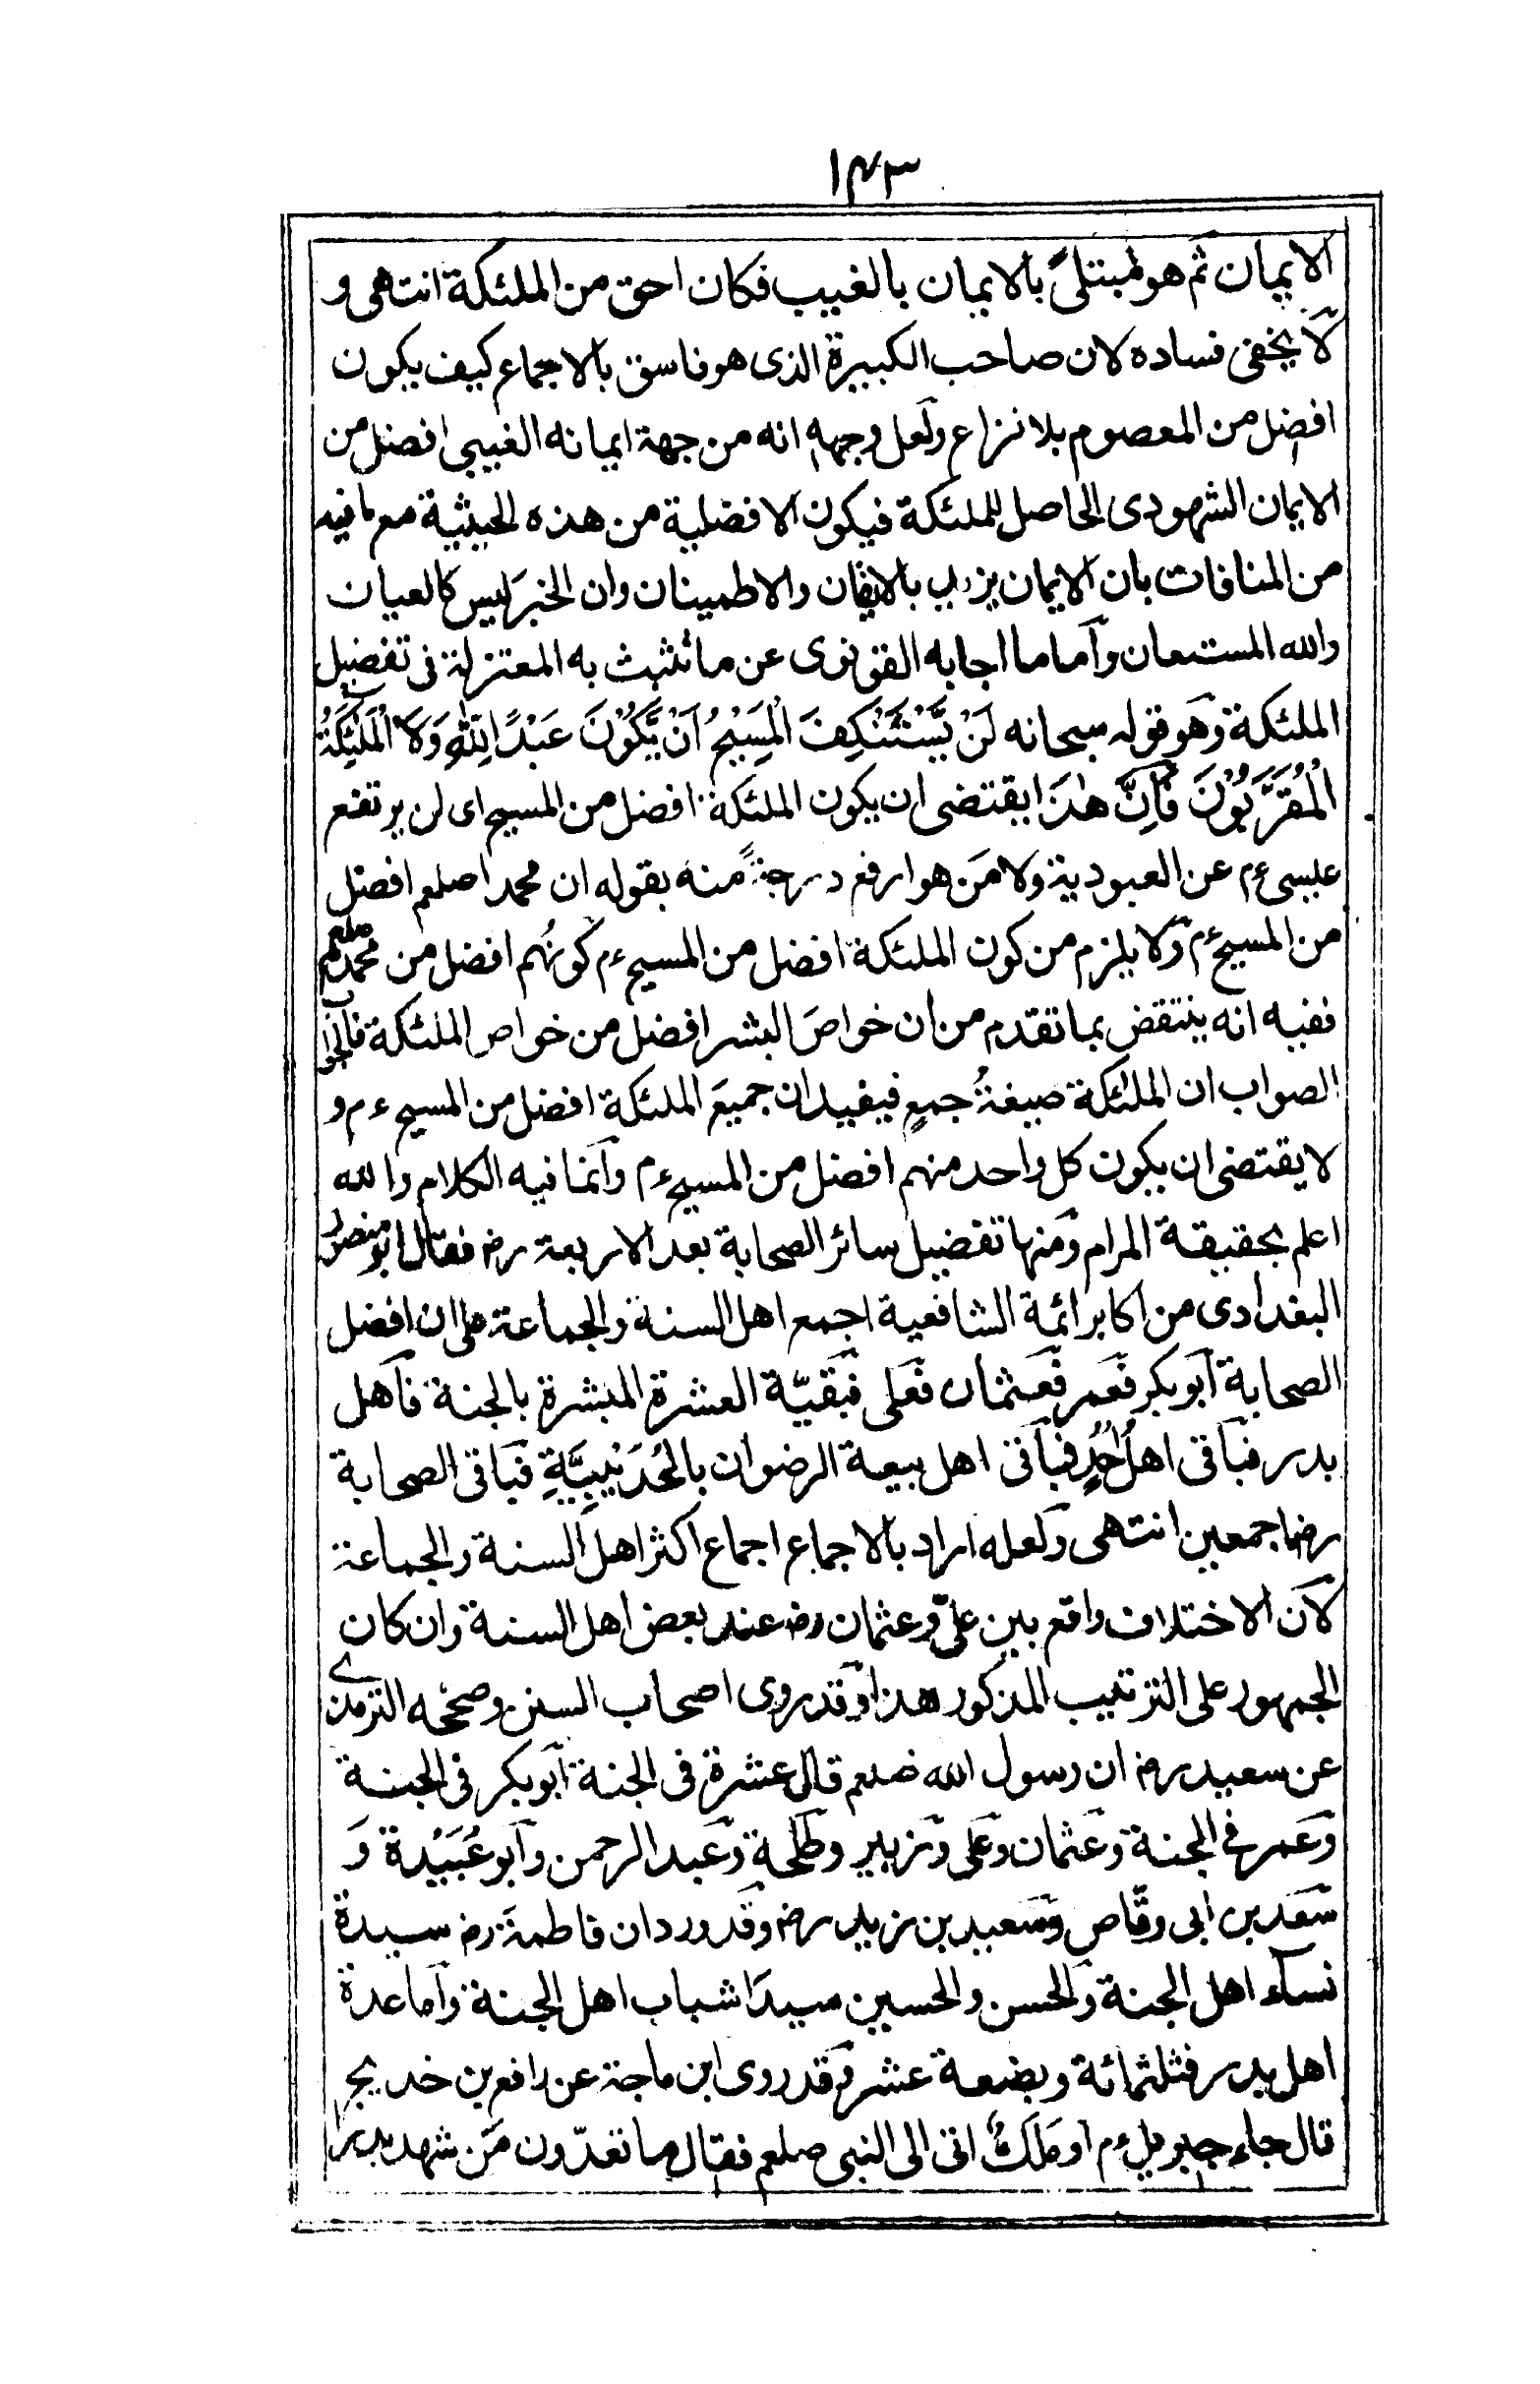 ١٤٣
الايمان ثم هو مبتلىً بالايمان بالغيب فكان احق من الملئكة انتهى و
لا يخفى فساده لان صاحب الكبيرة الذى هو فاسق بالاجماع كيف يكون
افضل من المعصوم بلا نزاع ولعل وجهه انه من جهة ايمانه الغيبى افضل من
الايمان الشهودى الحاصل للملئكة فيكون الافضلية من هذه الحيثية مع ما فيه
من المنافات بان الايمان يزيد بالايقان والاطمينان وان الخبر ليس كالعيان
والله المستعان وآما ما اجابه القونوى عن ما تشبث به المعتزلة فى تفضيل
الملئكة وهو قوله سبحانه لَنْ يَّسْتَنْكِفَ الْمَسِيْحُ اَنْ يَّكُوْنَ عَبْدًا لِلّٰهِ وَلَا الْمَلٰئِكَةُ
الْمُقَرَّبُوْنَ فَاِنَّ هٰذَا يقتضى ان يكون الملئكة افضل من المسيح اى لن يرتفع
عيسىٰ ءم عن العبودية ولا مَن هو ارفع درجةً منه بقوله ان محمدا صلعم افضل
من المسيح ءم ولا يلزم من كون الملئكة افضل من المسيح ءم كونُهم افضل من محمد صلعم
ففيه انه ينتقض بما تقدم من ان خواصَ البشر افضل من خواص الملئكة فالجواب
الصواب ان الملٰئكة صيغةُ جمعٍ فيفيد ان جميعَ الملئكة افضل من المسيح ءم و
لا يقتضى ان يكون كل واحد منهم افضل من المسيح ءم وآنما فيه الكلام والله
اعلم بحقيقة المرام ومنها تفضيل سائر الصحابة بعد الاربعة رض فقال ابو منصور
البغدادى من اكابر ائمة الشافعية اجمع اهل السنة والجماعة على ان افضل
الصحابة آبو بكر فعمر فعثمان فعلى فبقيّة العشرة المبشرة بالجنة فآهل
بدر فباقى اهل اُحُدٍ فباقى اهل بيعة الرضوان بالْحُدَيْبِيَّةِ فباقى الصحابة
رض اجمعين انتهى ولعله اراد بالاجماع اجماع اكثر اهل السنة والجماعة
لان الاختلاف واقع بين علىّ وعثمان رض عند بعض اهل السنة وان كان
الجمهور على الترتيب المذكور هذا وقد روى اصحاب السنن وصححه الترمذى
عن سعيد رض ان رسول الله صلعم قال عشرة فى الجنة آبو بكر فى الجنة
وعمر فى الجنة وعثمان وعلى وزبير وطلحة وعبد الرحمن وآبو عُبَيْدة وَ
سعد بن ابى وقّاص وسعيد بن زيد رض وقد ورد ان فاطمةَ رض سيدة
نسآء اهل الجنة والحسن والحسين سيدَا شباب اهل الجنة وآما عدة
اهل بدر فثلثمائة وبضعة عشر وقد روى ابن ماجة عن رافع بن خديج
قال جاء جبريل ءم او مَلَكٌ اتى الى النبى صلعم فقال ما تعدّون مَن شهد بدرا